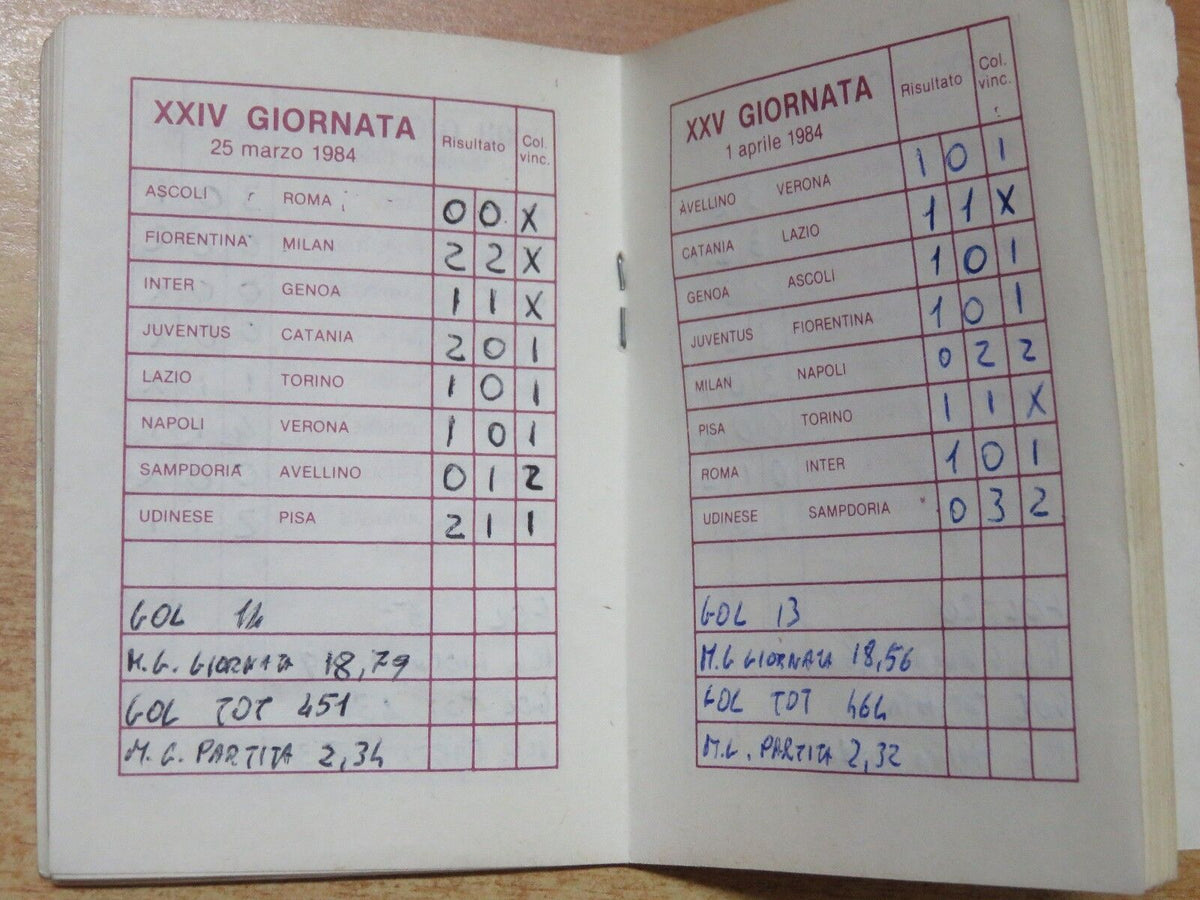 XXIV GIORNATA Risultato Col. vinc.
25 marzo 1984
ASCOLI ROMA 0 0 X
FIORENTINA MILAN 2 2 X
INTER GENOA 1 1 X
JUVENTUS CATANIA 2 0 1
LAZIO TORINO 1 0 1
NAPOLI VERONA 1 0 1
SAMPDORIA AVELLINO 0 1 2
UDINESE PISA 2 1 1
GOL 14
M.G. GIORNATA 18,79
GOL TOT 451
M.G. PARTITA 2,34
XXV GIORNATA Risultato Col. vinc.
1 aprile 1984
AVELLINO VERONA 1 0 1
CATANIA LAZIO 1 1 X
GENOA ASCOLI 1 0 1
JUVENTUS FIORENTINA 1 0 1
MILAN NAPOLI 0 2 2
PISA TORINO 1 1 X
ROMA INTER 1 0 1
UDINESE SAMPDORIA 0 3 2
GOL 13
M.G GIORNATA 18,56
GOL TOT 464
M.G. PARTITA 2,32